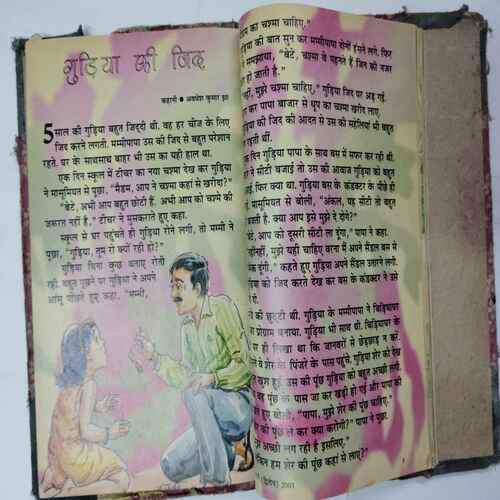 गुड़िया की जिद
कहानी • अवधेश कुमार झा
5 साल की गुड़िया बहुत जिद्दी थी. वह हर चीज के लिए
जिद करने लगती. मम्मीपापा उस की जिद से बहुत परेशान
रहते. घर के साथसाथ बाहर भी उस का यही हाल था.
एक दिन स्कूल में टीचर का नया चश्मा देख कर गुड़िया
ने मासूमियत से पूछा, "मैडम, आप ने चश्मा कहां से खरीदा?"
"बेटे, अभी आप बहुत छोटी हैं. अभी आप को चश्मे की
जरूरत नहीं है," टीचर ने मुसकराते हुए कहा.
स्कूल से घर पहुंचते ही गुड़िया रोने लगी, तो मम्मी ने
पूछा, "गुड़िया, तुम रो क्यों रही हो?"
गुड़िया बिना कुछ बताए रोती
रही. बहुत पूछने पर गुड़िया ने अपने
आंसू पोंछते हुए कहा, "मम्मी,
का चश्मा चाहिए."
की बात सुन कर मम्मीपापा दोनों हंसने लगे. फिर
समझाया, "बेटे, चश्मा वे पहनते हैं जिन की नजर
हो जाती है."
नहीं, मुझे चश्मा चाहिए," गुड़िया जिद पर अड़ गई.
कर पापा बाजार से धूप का चश्मा खरीद लाए.
की जिद की आदत से उस की सहेलियां भी बहुत
रहती थीं.
दिन गुड़िया पापा के साथ बस में सफर कर रही थी.
ने सीटी बजाई तो उस की आवाज गुड़िया को बहुत
फिर क्या था. गुड़िया बस के कंडक्टर के पीछे ही
मासूमियत से बोली, "अंकल, यह सीटी तो बहुत
बजती है. क्या आप इसे मुझे दे दोगे?"
बेटे, आप को दूसरी सीटी ला दूंगा," पापा ने कहा.
मुझे यही चाहिए वरना मैं अपने सैंडल बस से
दूंगी," कहते हुए गुड़िया अपने सैंडल उतारने लगी.
को जिद करते देख कर बस के कंडक्टर ने उसे
दी.
की छुट्टी थी. गुड़िया के मम्मीपापा ने चिड़ियाघर
प्रोग्राम बनाया. गुड़िया भी साथ थी. चिड़ियाघर के
पर ही लिखा था कि जानवरों से छेड़छाड़ न करें.
वे शेर के पिंजरे के पास पहुंचे. गुड़िया शेर को देख
खुश हुई. उस की पूंछ गुड़िया को बहुत अच्छी लगी.
वह पूंछ के पास जा कर खड़ी हो गई और पापा को
हुए बोली, "पापा, मुझे शेर की पूंछ चाहिए."
की पूंछ ले कर क्या करोगी?" पापा ने पूछा.
अच्छी लग रही है इसलिए."
हम शेर की पूंछ कहां से लाएं?"
(द्वितीय) 2003